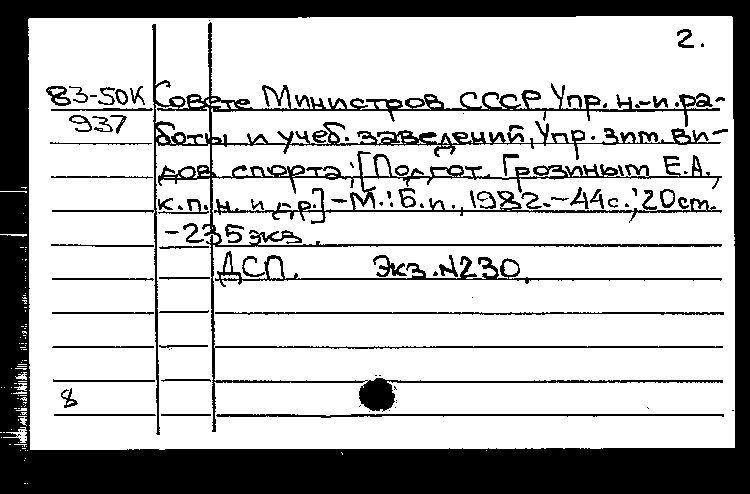 2.
83-50К Совете Министров СССР, Упр. н.-и. ра-
937 боты и учеб. заведений, Упр. зим. ви-
дов спорта; [Подгот. Грозиным Е.А.,
к.п.н. и др.] -М.: Б.и., 1982.-44с.; 20см.
-235экз.
ДСП. Экз.N230.
8